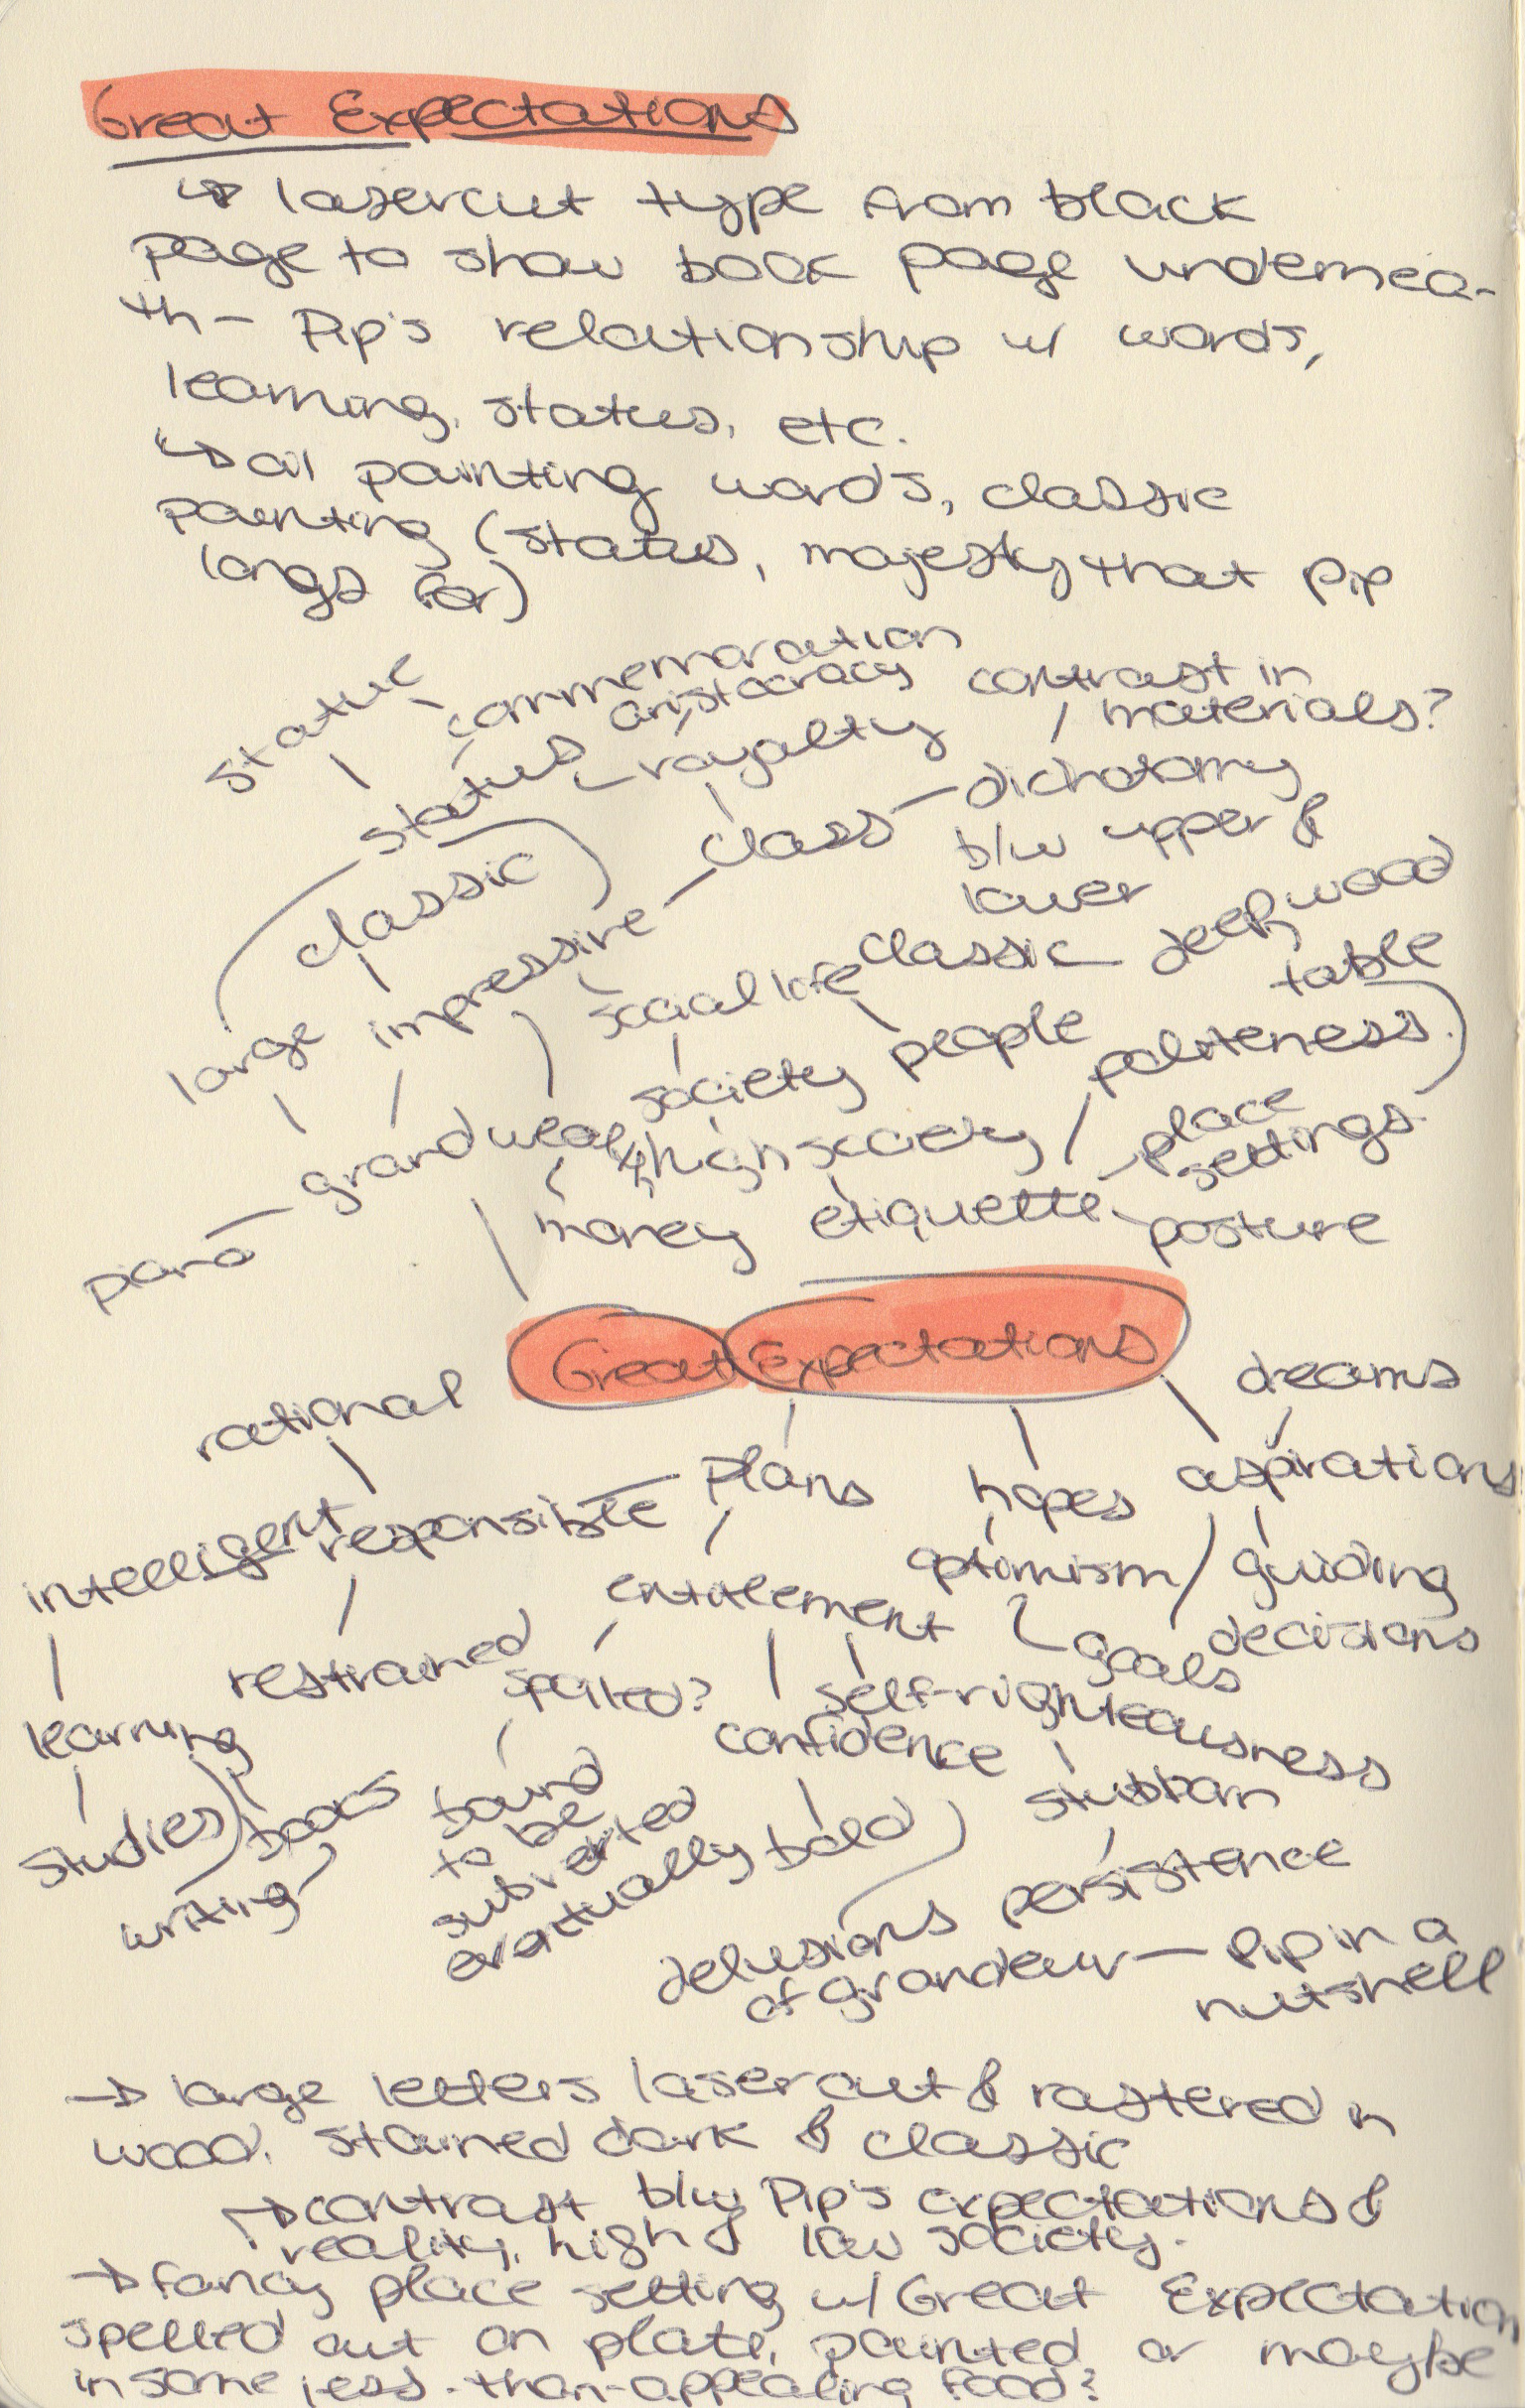 Great Expectations
↳ lasercut type from black
page to show book page undernea-
th - Pip's relationship w/ words,
learning, status, etc.
↳ oil painting words, classic
painting (status, majesty that Pip
longs for)
statue
commemoration
aristocracy
contrast in
materials?
status
royalty
classic
class
dichotomy
b/w upper &
lower
large
impressive
social life
classic
deep wood
table
society
people
politeness
piano
grand
wealth
high society
place
settings
money
etiquette
posture
Great Expectations
rational
dreams
intelligent
responsible
plans
hopes
aspirations
entitlement
optimism
guiding
decisions
restrained
spoiled?
goals
learning
confidence
self-righteousness
studies
books
writing
bound
to be
subverted
eventually
bold
stubborn
persistence
delusions
of grandeur — Pip in a
nutshell
→ large letters laser cut & rastered in
wood, stained dark & classic
↳ contrast b/w Pip's expectations &
reality, high & low society.
→ fancy place setting w/ Great Expectation
spelled out on plate, painted or maybe
in some less-than-appealing food?